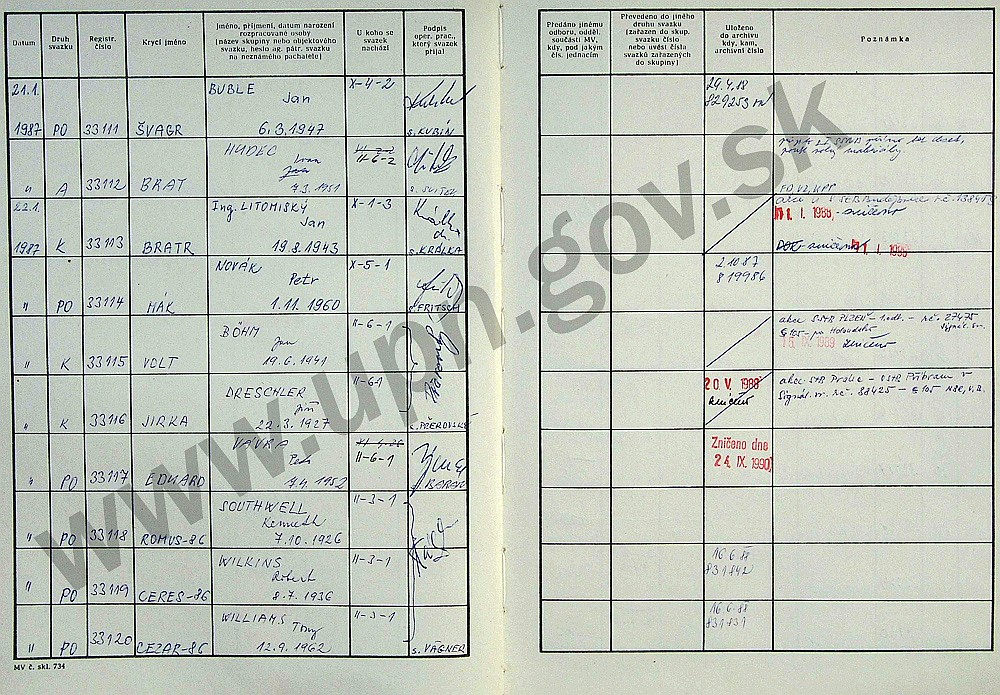 Datum
Druh svazku
Registr. číslo
Krycí jméno
Jméno, příjmení, datum narození
rozpracované osoby
(název skupiny nebo objektového
svazku, heslo ag. pátr. svazku
na neznámého pachatele)
U koho se
svazek
nachází
Podpis
oper. prac.,
který svazek
přijal
21.1.
BUBLE
X-4-2
Jan
1987 PO 33111 ŠVAGR 6.3.1947 s. KUBÍN
HUDEC
Ivan
II-6-2
" A 33112 BRAT 7.3.1951 s. SVITEK
22.1.
Ing. LITOMISKÝ
X-1-3
Jan
1987 K 33113 BRATR 19.8.1943 s. KRÁLKA
NOVÁK
X-5-1
Petr
" PO 33114 HÁK 1.11.1960 s. FRITSCH
BÖHM
II-6-1
Jan
" K 33115 VOLT 19.6.1941
DRESCHLER
II-6-1
Jiří
" K 33116 JIRKA 22.3.1927 s. PŘEROVSKÝ
VÁVRA
Petr
II-6-1
" PO 33117 EDUARD 9.4.1952 s. BARAN
SOUTHWELL
II-3-1
Kenneth
" PO 33118 ROMUS-86 7.10.1926
WILKINS
II-3-1
Robert
" PO 33119 CERES-86 8.7.1936
WILLIAMS
II-3-1
Tony
" PO 33120 CEZAR-86 12.9.1962 s. VÁGNER
MV č. skl. 734
Předáno jinému
odboru, odděl.
součásti MV,
kdy, pod jakým
čís. jednacím
Převedeno do jiného
druhu svazku
(zařazen do skup.
svazku číslo
nebo uvést čísla
svazků zařazených
do skupiny)
Uloženo
do archivu
kdy, kam,
archivní číslo
Poznámka
29.4.88
829253
materiály.
1. I. 1988
zničeno
2 10 87
819986
akce S-StB PLZEŇ
č. 27475
15. IX. 1989
zničeno
20. V. 1988
zničeno
akce StB Praha - OStB Příbram
Signál. sv. rč. 88425
Zničeno dne
24. IX. 1990
16 6 88
831842
16 6 88
831831
www.upn.gov.sk